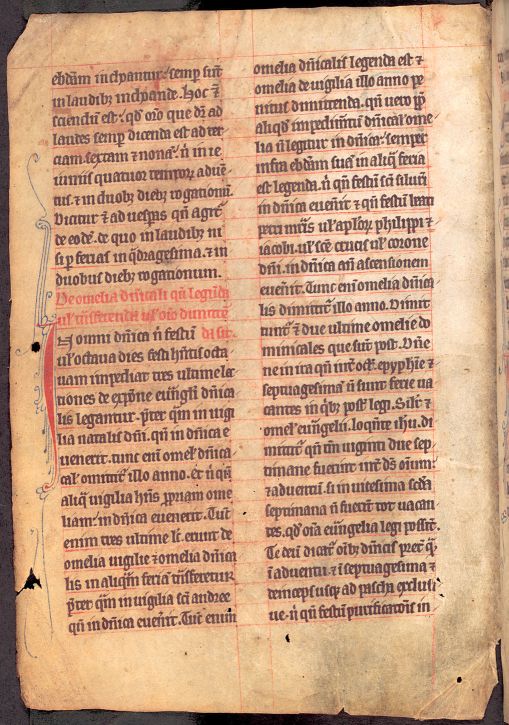 ebdm inchoantur. semp sūt
in laudibꝫ inchoande. Hoc ⁊
sciendū est. qd oro que dr ad
laudes semp dicenda est ad ter
ciam. sextam ⁊ nonā. n in ie
iuniis quatuor tempor. aduē
tus. ⁊ in duobꝫ diebꝫ rogationū.
⁊ ad uespas qn agit
de eodē. de quo in laudibꝫ ni
si p ferias in qdragesima. ⁊ in
duobus diebꝫ rogationum.
De omelia dnicali qn legenda
ul tnsferenda ul oīo dimitte
omni dnica n festū da sit.
ul octaua dies festi hntis octa
uam impediat tres ultime lc
tiones de expōne eungli dnica
lis legantur. pter qm in uigi
lia natalis dni. qn in dnica e
uenerit. tunc eni omel dnica
cal omittit illo anno. Et n qn
aliq uigilia hns ppriam ome
liam. in dnica euenerit. Tūc
enim tres ultime lc. erunt de
omelia uigilie ⁊ omelia dnica
lis in aliqm feria tnsferetur
pter qm in uigilia sci andree
qn in dnica euenit. Tūc enim
omelia dnicalis legenda est ⁊
omelia de uigilia illo anno pe
nitus dimittenda. qn uero pp
aliqd impedimtū dnical ome
lia n legitur in dnica. semper
infra ebdm suā in aliq feria
est legenda. n qn festū sci siluri
in dnica euenit ⁊ qn festū beati
petri mris ul aplor philippi ⁊
iacobi. ul sce crucis ul corone
dni. in dnica an ascensionem
euenit. Tunc eni omelia dnica
lis dimittit illo anno. Dimit
tunt ⁊ due ultime omelie do
minicales que sunt post.
ne in ita qn int oct epyphie ⁊
septuagesima n sunt ferie ua
cantes in qbꝫ post legi. Silr ⁊
omel eungelii. loqnte ihu. di
mittit qn tm uiginti due sep
timane fuerint int ds oium
⁊ aduentū. si in uicesima scda
septimana n fuerit tot uacan
tes. qd oia eungelia legi possint.
Te deū dicat oībꝫ dnicis preter q
i aduentu. ⁊ i septuagesima ⁊
deinceps usqꝫ ad pascha exclusi
ue. n qn festū purificatois in